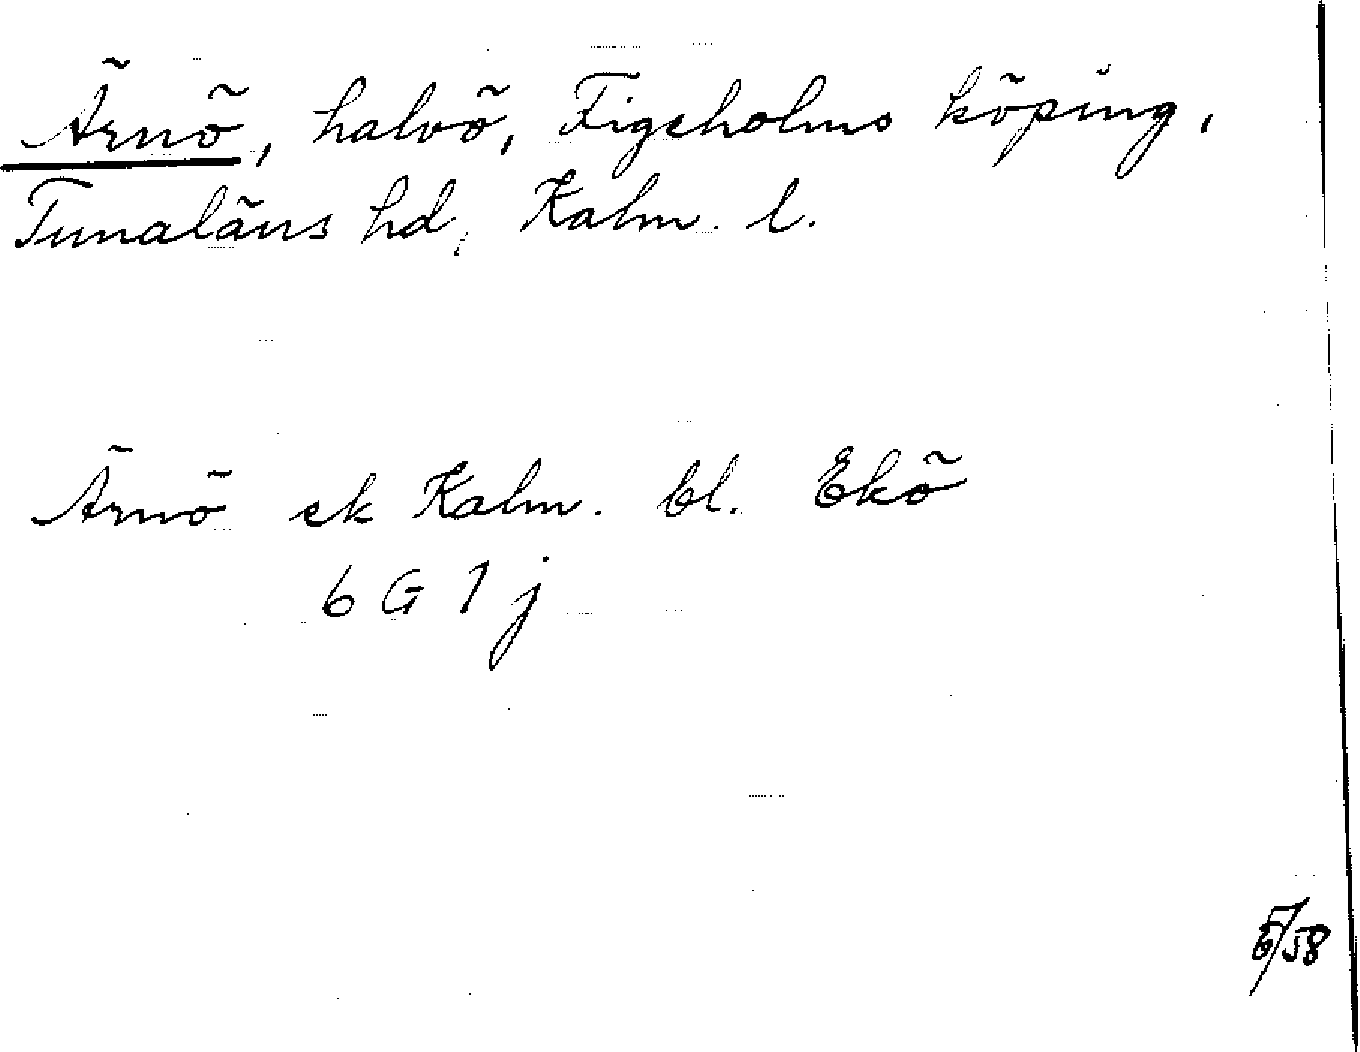 Ärnö, halvö, Figeholms köping,
Tunaläns hd, Kalm. l.
Ärnö ek Kalm. bl. Ekö
6 G 1 j
/58